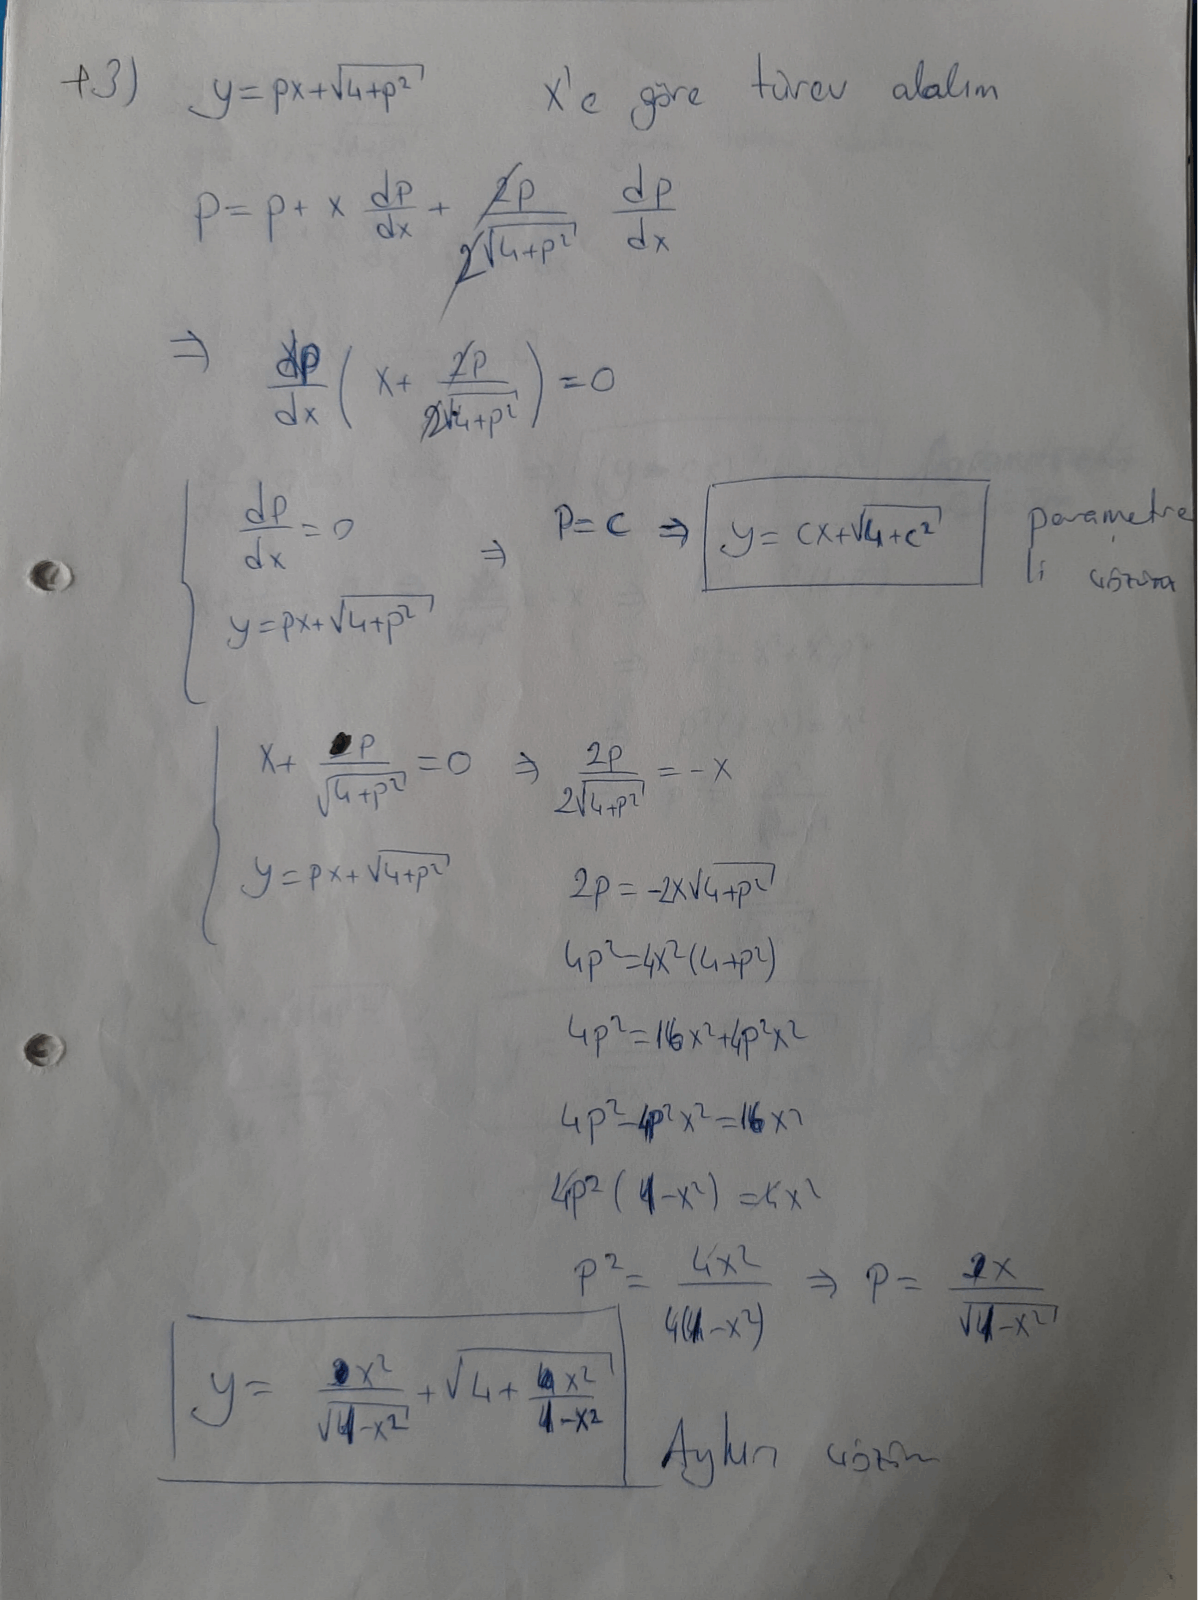 +3) y=px+√(4+p²) x'e göre türev alalım
p=p+x dp/dx + 2p/(2√(4+p²)) dp/dx
⇒ dp/dx ( x+ 2p/(2√(4+p²)) ) =0
dp/dx =0 ⇒ p=c ⇒ y=cx+√(4+c²) parametre
li çözüm
y=px+√(4+p²)
x+ p/√(4+p²) =0 ⇒ 2p/(2√(4+p²)) = -x
y=px+√(4+p²) 2p=-2x√(4+p²)
4p²=4x²(4+p²)
4p²=16x²+4p²x²
4p²-4p²x²=16x²
4p²(1-x²)=4x²
p²= 4x²/(4(1-x²)) ⇒ p= 2x/√(1-x²)
y= 2x²/√(1-x²) + √(4+ 4x²/(1-x²))
Aykırı çözüm